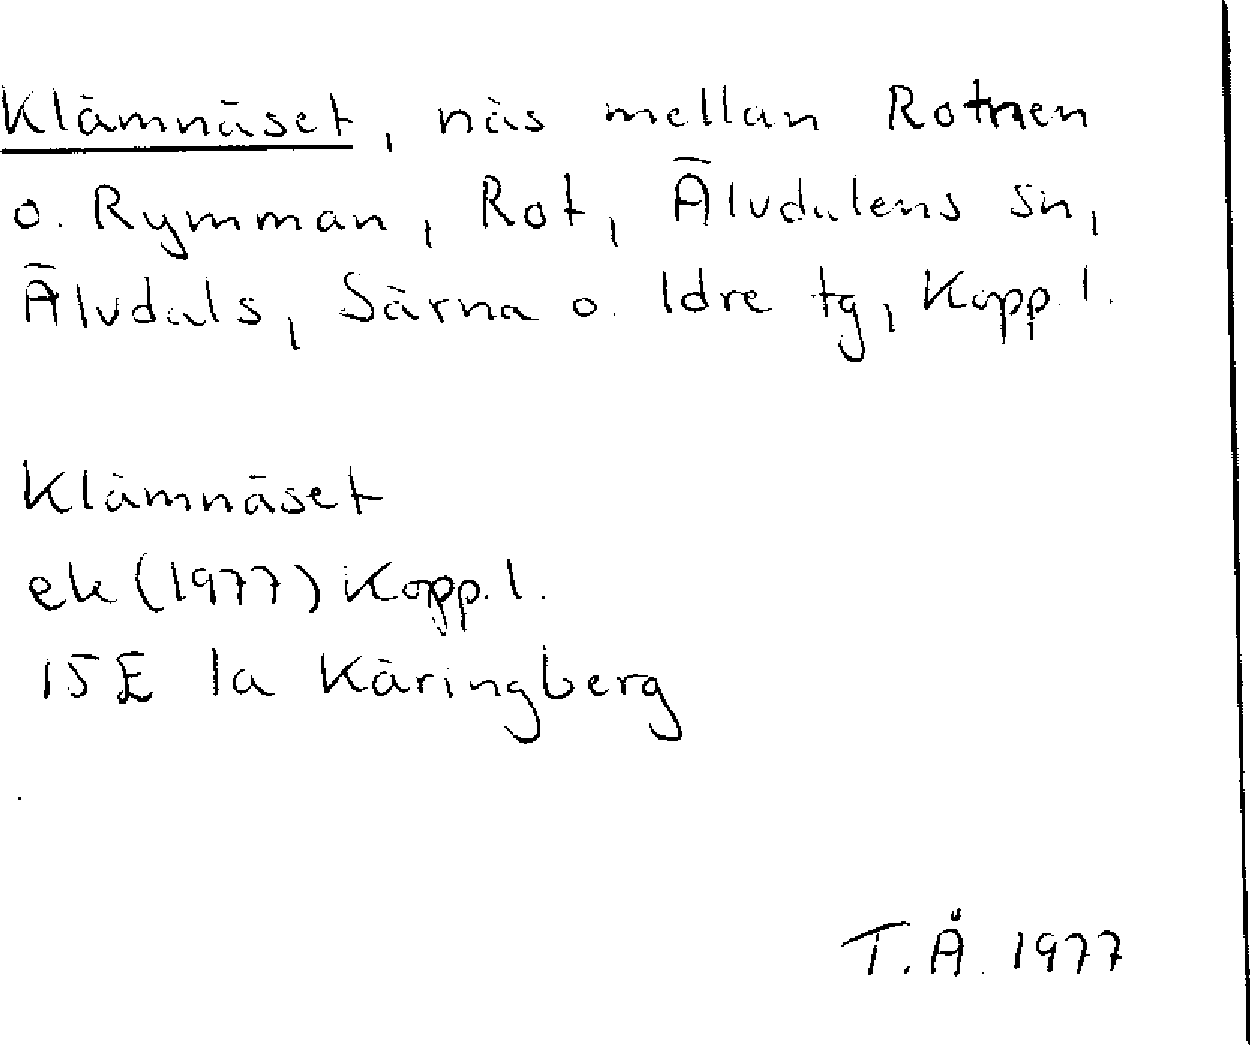 Klämnäset, näs mellan Rotnen
o. Rymman, Rot, Älvdalens sn,
Älvdals, Särna o. Idre tg, Kopp. l.
Klämnäset
ek (1977) Kopp. l.
15 E 1a Käringberg
T. Å. 1977